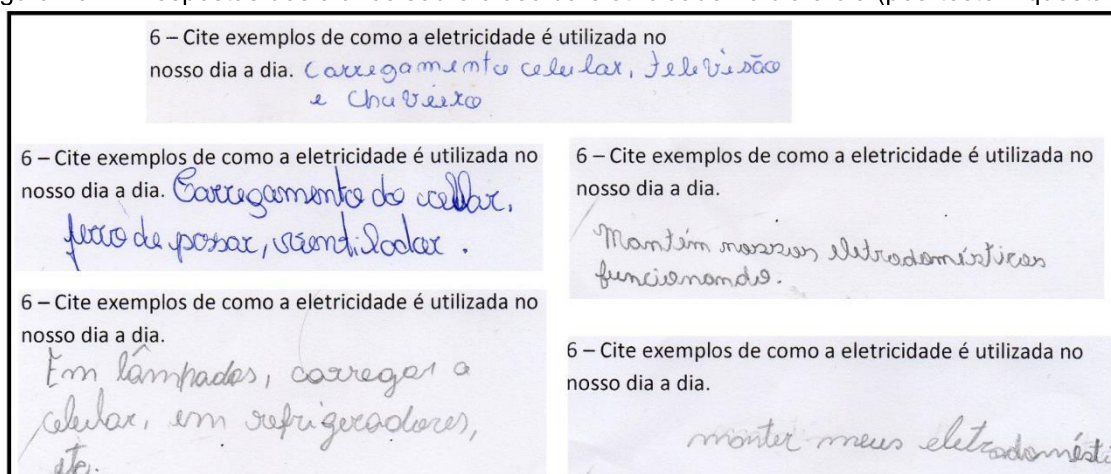 6 – Cite exemplos de como a eletricidade é utilizada no
nosso dia a dia. Carregamento celular, televisão
e chuveiro
6 – Cite exemplos de como a eletricidade é utilizada no
nosso dia a dia. Carregamento do celular,
ferro de passar, ventilador.
6 – Cite exemplos de como a eletricidade é utilizada no
nosso dia a dia.
Mantém nossos eletrodomésticos
funcionando.
6 – Cite exemplos de como a eletricidade é utilizada no
nosso dia a dia.
Em lâmpadas, carregar a
celular, em refrigeradores,
etc.
6 – Cite exemplos de como a eletricidade é utilizada no
nosso dia a dia.
manter meus